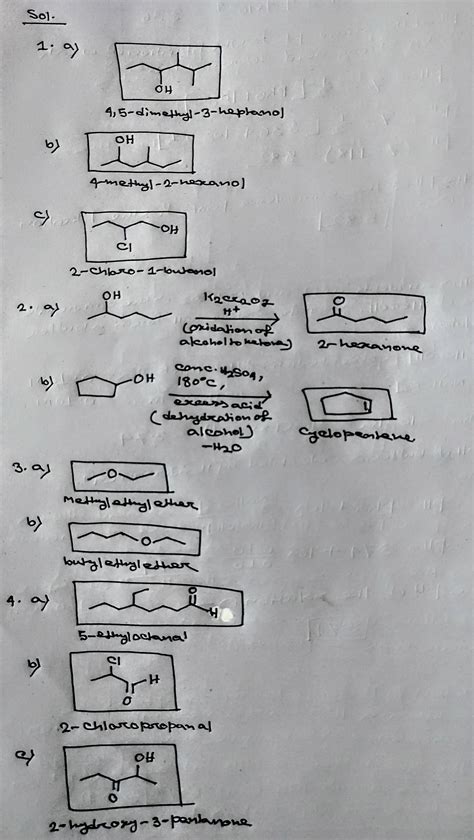 Sol.
1. a)
OH
4,5-dimethyl-3-heptanol
b)
OH
4-methyl-2-hexanol
c)
OH
Cl
2-chloro-1-butanol
2. a)
OH
K2Cr2O7
H+
(oxidation of
alcohol to ketone)
O
2-hexanone
b)
OH
conc. H2SO4,
180°C,
excess acid
(dehydration of
alcohol)
-H2O
cyclopentene
3. a)
O
Methyl ethyl ether
b)
O
butyl ethyl ether
4. a)
O
H
5-ethyloctanal
b)
Cl
H
O
2-chloropropanal
c)
OH
O
2-hydroxy-3-pentanone